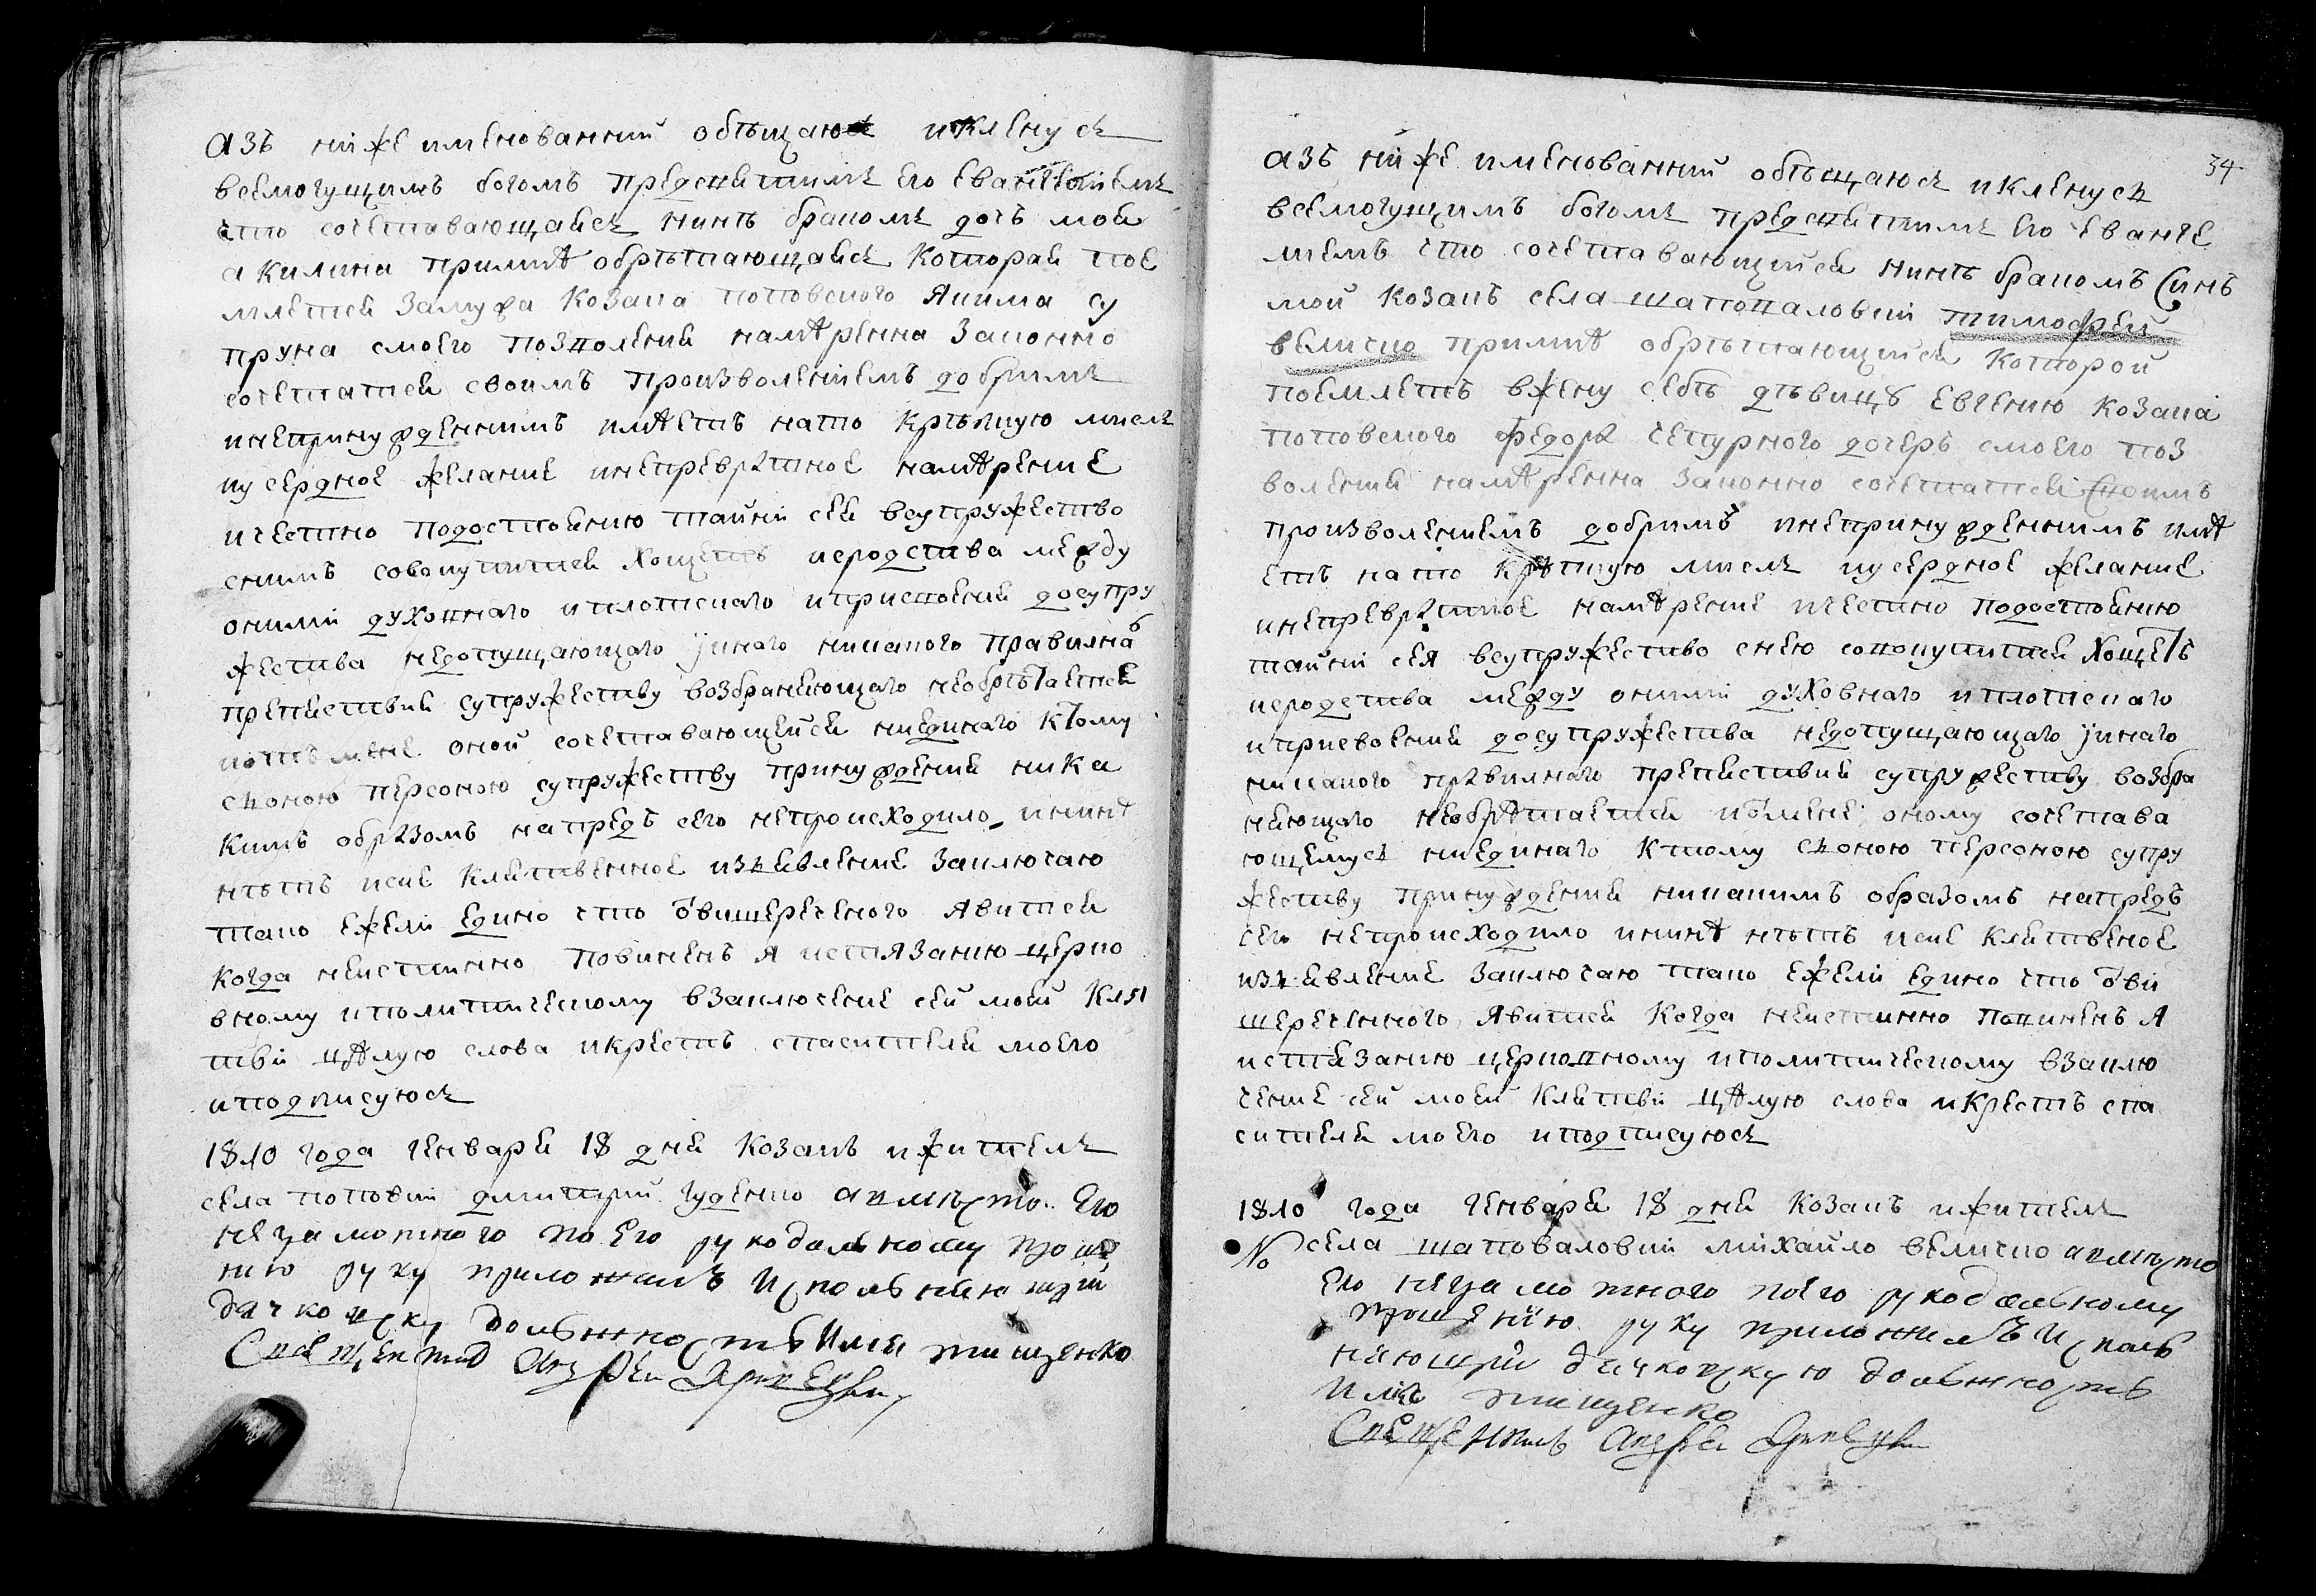 Азъ ниже именованний обѣщаюся иклянуся
всемогущимъ богомъ предсвятимъ его евангелиемъ
что сочетавающаяся нинѣ бракомъ дочъ моя
акилина примѣ обрѣтающаяся которая пое
млется замужа козака поповского якима су
пруна смоего позволения намѣренна законно
сочетатся своимъ произволениемъ добримъ
инепринужденнимъ имѣетъ нато крѣпкую мисль
иусердное желание инепревратное намѣрение
ичестно подостоянию тайни сея всупружество
снимъ совокупится хощетъ иродства между
оними духовнаго иплотскаго иприсвоения досупру
жества недопущающаго јинаго никакого правилнаго
препятствия супружеству возбраняющаго необрѣтается
иотъ мене оной сочетавающейся ниединаго ктому
съоною персоною супружеству принуждения ника
кимъ образомъ напредъ сего непроисходило, ининѣ
нѣтъ исие клятвенное изъявление заключаю
тако ежели едино что отвишереченого явится
когда неистинно повиненъ я истязанию церко
вному иполитическому взаключение сей моей кля
тви цѣлую слова икрестъ спасителя моего
иподписуюсь
1810 года генваря 18 дня козакъ ижитель
села поповки дмитрий гуденко авмѣсто его
незамотного по его рукоданному проше
нию руку приложилъ исполняющий
дячковску должность Илия тищенко
Священникъ Андрей
34
Азъ ниже именованний обѣщаюся иклянуся
всемогущимъ богомъ предсвятимъ его еванге
лиемъ что сочетавающийся нинѣ бракомъ синъ
мой козакъ села шаповаловки тимофей
величко примѣ обрѣтающийся которой
поемлетъ вжену себѣ дѣвицу евгению козака
поповского федора чепурного дочеръ смоего поз
воления намѣренна законно сочетатся своимъ
произволениемъ добримъ инепринужденнимъ имѣ
етъ нато крѣпкую мисль иусердное желание
инепревратное намѣрение ичестно подостоянию
тайни сея всупружество снею совокупится хощетъ
иродства между оними духовнаго иплотскаго
иприсвоения досупружества недопущающаго јинаго
никакого правилного препятствия супружеству возбра
няющаго необрѣтается иотмене оному сочетава
ющемуся ниединаго ктому съоною персоною супру
жеству принуждения никакимъ образомъ напредъ
сего непроисходило ининѣ нѣтъ исие клятвеное
изъявление заключаю тако ежели едино что отви
шереченного явится когда неистинно повиненъ я
истязанию церковному иполитическому взаклю
чение сей моей клятви цѣлую слова икрестъ спа
сителя моего иподписуюсь
1810 года генваря 18 дня козакъ ижитель
№ села шаповаловки михайло величко авмѣсто
его незамотного поего рукоданному
прошенїю руку приложилъ исполъ
няющий дячковскую должность
Илия тищенко
Священникъ Андрей